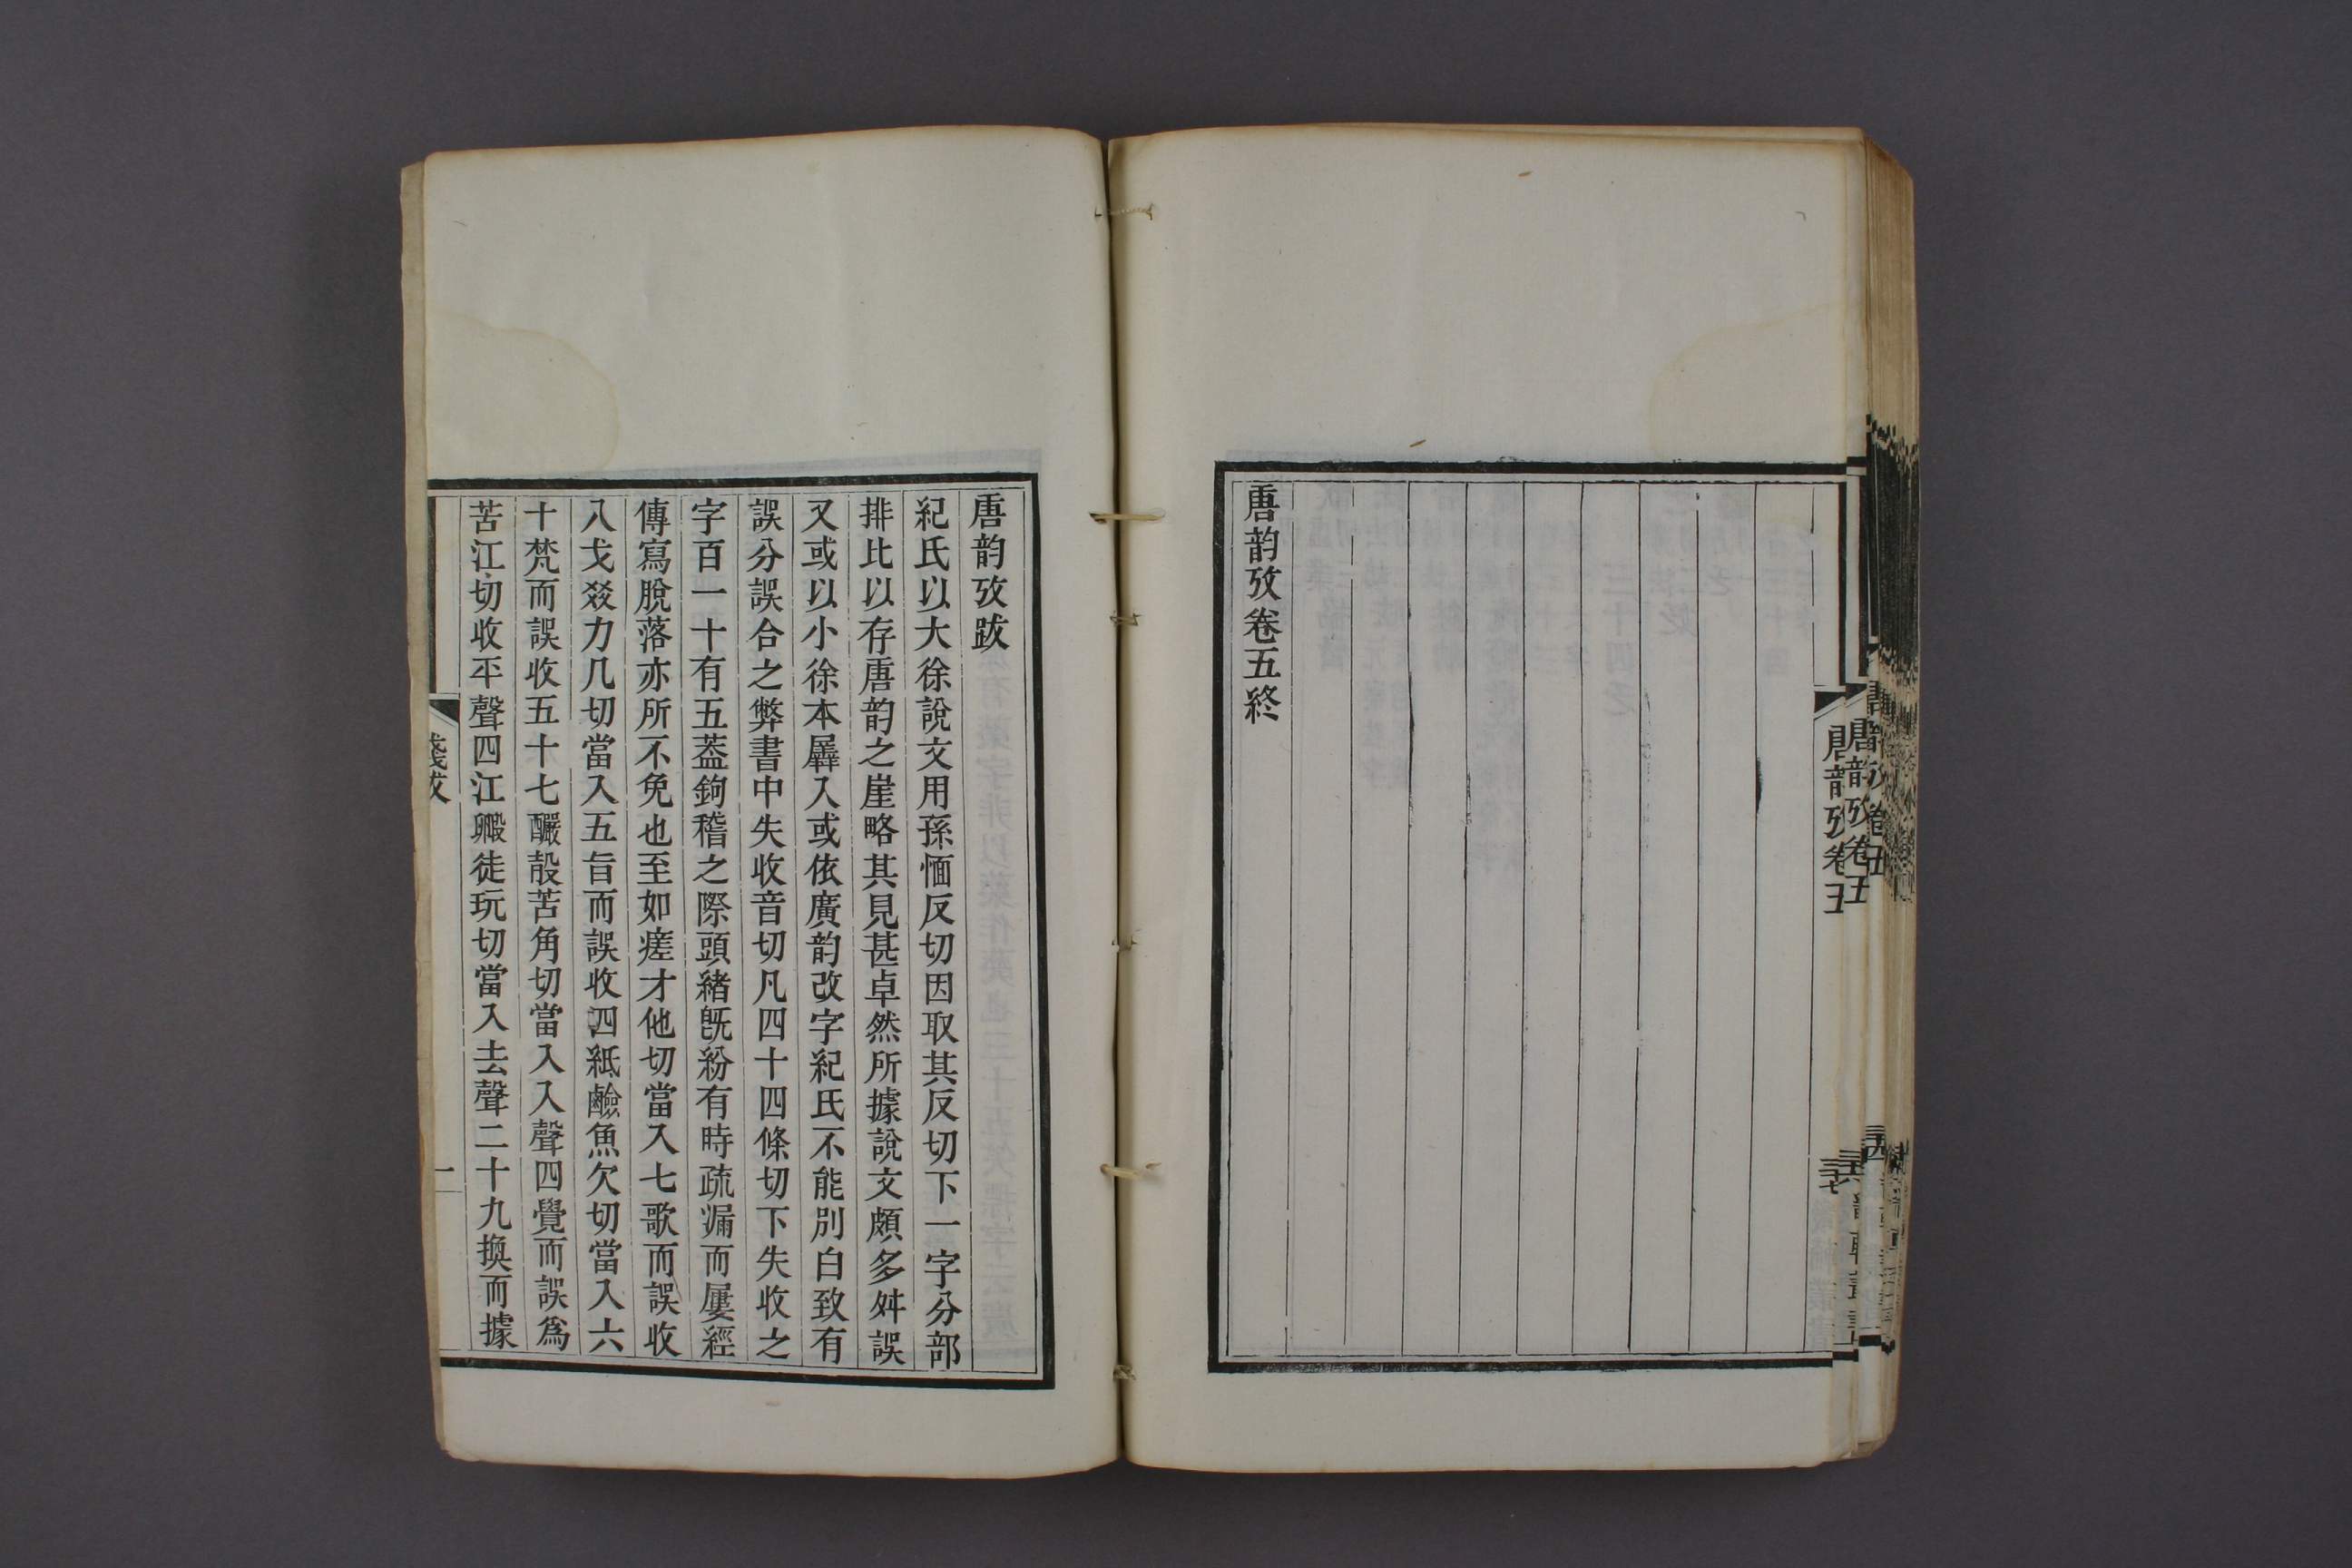 唐韵攷卷五終
唐韵攷卷五
唐韵攷跋
紀氏以大徐說文用孫愐反切因取其反切下一字分部
排比以存唐韵之崖略其見甚卓然所據說文頗多舛誤
又或以小徐本羼入或依廣韵改字紀氏不能別白致有
誤分誤合之弊書中失收音切凡四十四條切下失收之
字百一十有五葢鉤稽之際頭緒旣紛有時疏漏而屢經
傳寫脫落亦所不免也至如瘥才他切當入七歌而誤收
八戈㸚力几切當入五旨而誤收四紙鹼魚欠切當入六
十梵而誤收五十七釅㱿苦角切當入入聲四覺而誤爲
苦江切收平聲四江毈徒玩切當入去聲二十九換而據